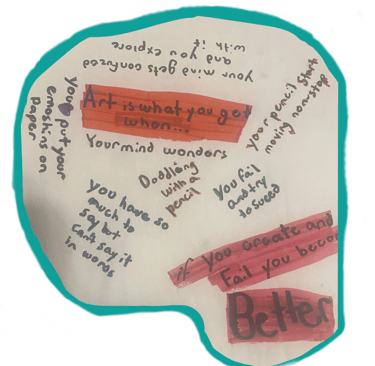 your mind gets confuzed
and you explore
with it
your pencil start
moving non-stop
you put your
emoshins on
paper
Art is what you get
when...
Your mind wonders
Doddling
with a
pencil
You fail
and try
to suceed
you have so
much to
say but
can't say it
in words
if You create and
Fail you
Better